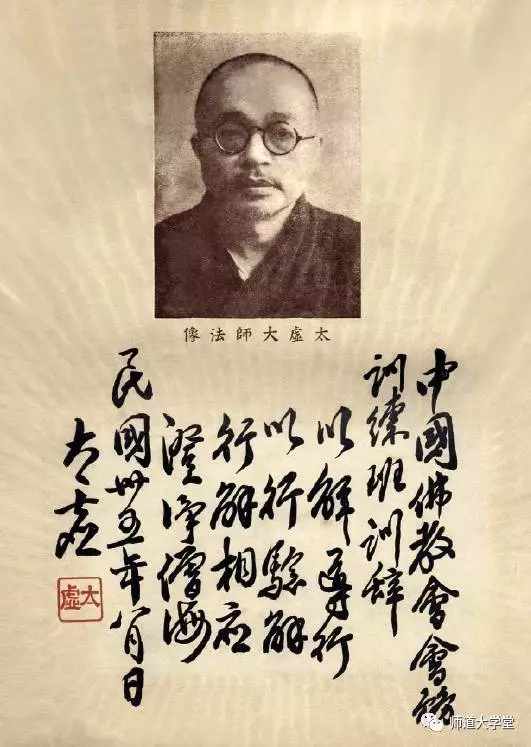 太虛大師法像
中國佛教會會務
訓練班訓辭
以解導行
以行驗解
行解相應
澄淨僧海
民國卅五年八月日
太虛
太虛
师道大学堂